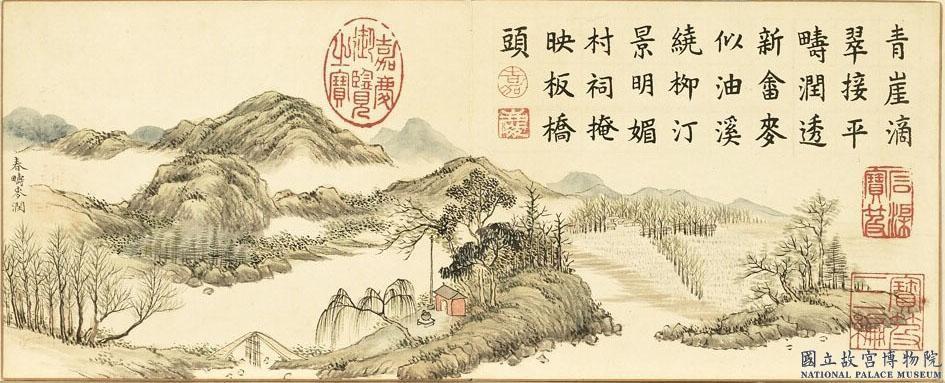 青崖滴
翠接平
疇潤透
新畬麥
似油溪
繞栁汀
景明媚
村祠掩
映板橋
頭
嘉
慶
嘉慶
御覽
之寶
春疇
石渠
寶笈
寶笈
三編
國立故宮博物院
NATIONAL PALACE MUSEUM